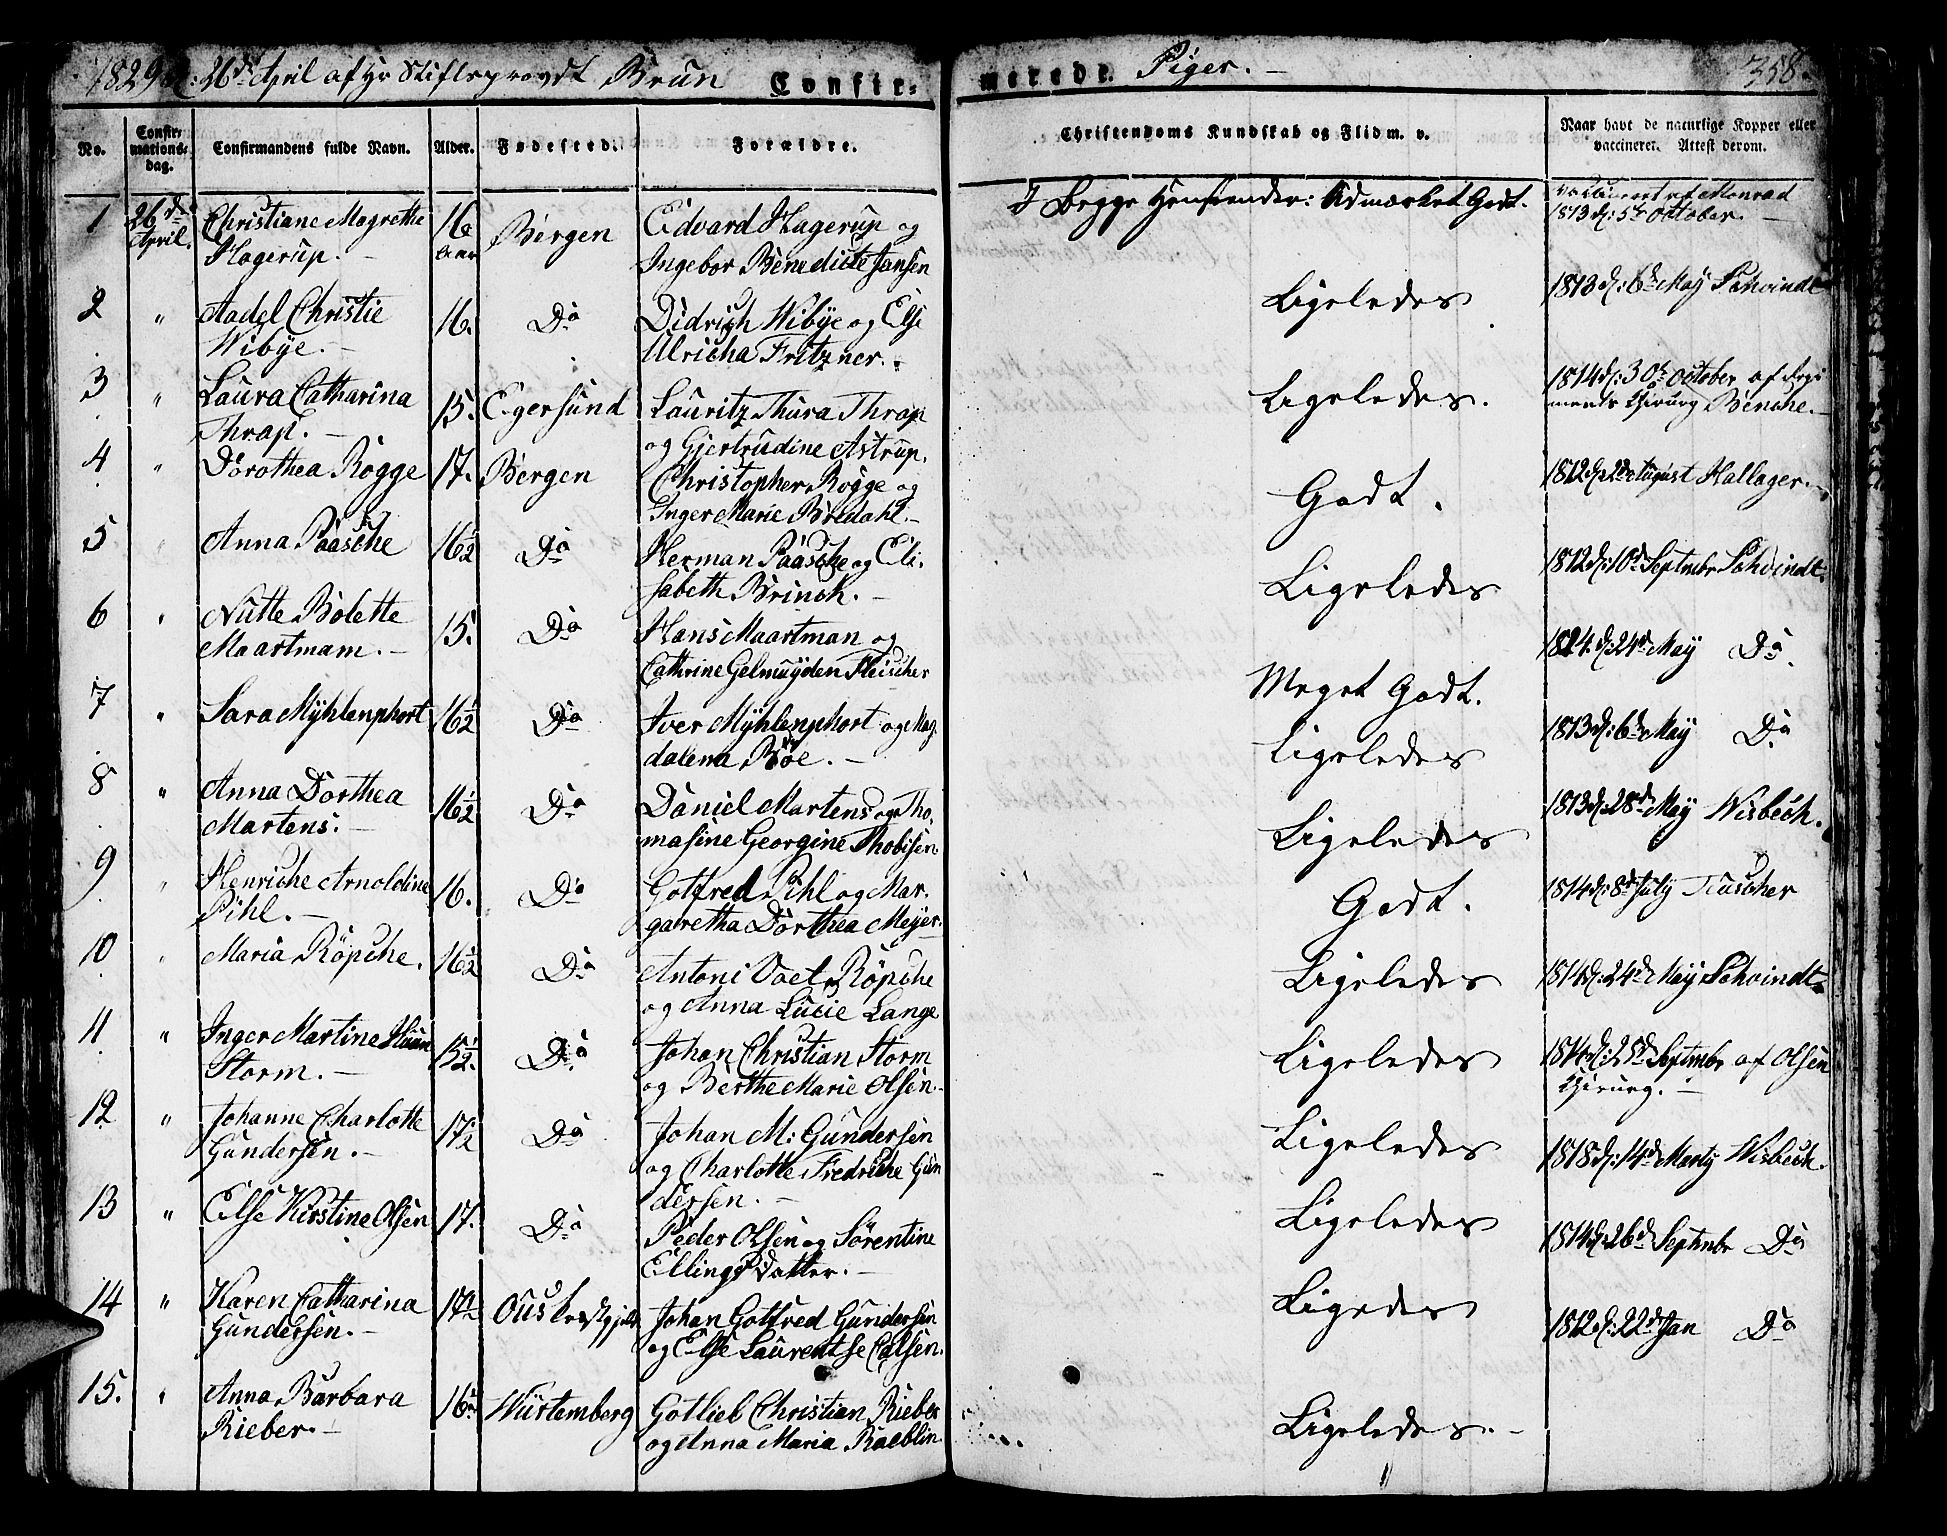 1829 d: 26de April af Hr Stiftsprovst Brun Confir-
merede Piger. 358.
No. Confirmationsdag. Confirmandens fulde Navn. Alder. Fødested. Forældre. Christendoms Kundskab og Flid m. v. Naar havt de naturlige Kopper eller vaccineret. Attest derom.
1 26de April. Christiane Magrethe Hagerup. 16 Aar Bergen Edvard Hagerup og Ingebor Benedicte Jansen I Begge Henseender: Udmærket Godt. vaccineret af Monrad 1813 d: 5te October.
2 " Aadel Christie Wibye. 16. Do Didrich Wibye og Else Ulricha Fritzner. Ligeledes 1813 d: 6te May Schvindt
3 " Laura Catharina Thrap. 15. Egersund Lauritz Thura Thrap og Gjertrudine Astrup. Ligeledes. 1814 d: 30te October af Regiments Chirurg Benche.
4 " Dorothea Rogge 17. Bergen Christopher Rogge og Inger Marie Bredahl. Godt. 1812 d: 2de August Hallager.
5 " Anna Paasche 16½ Do Herman Paasche og Elisabeth Brinch. Ligeledes 1812 d: 10de Septembr Schvindt.
6 " Nutte Bolette Maartmam. 15. Do Hans Maartman og Cathrine Gelmuyden Fleischer Meget Godt. 1814 d: 24de May Do
7 " Sara Mÿhlenphort 16½ Do Iver Mÿhlenphort og Magdalena Böe. Ligeledes 1813 d: 6te May Do
8 " Anna Dorthea Martens. 16½ Do Daniel Martens og Thomasine Georgine Thobisen Ligeledes 1813 d: 28de May Wisbech.
9 " Henriche Arnoldine Pihl. 16. Do Gotfred Pihl og Margaretha Dorthea Meyer. Godt. 1814 d: 8de July Tuscher
10 " Maria Röpche. 16½ Do Antoni Voet Röpche og Anna Lucie Lange Ligeledes 1814 d: 24de May Schvindt
11 " Inger Martine Huun Storm. 15½. Do Johan Christian Storm og Berthe Marie Olsen. Ligeledes 1814 d: 25de Septembr af Olsen Chirurg.
12 " Johanne Charlotte Gundersen. 17½ Do Johan M: Gundersen og Charlotte Fredriche Gundersen. Ligeledes 1818 d: 14de Marty Wisbech.
13 " Else Kirstine Olsen 17. Do Peder Olsen og Sörentine Ellings Datter. Ligeledes 1814 d: 26de Septembr Do
14 " Karen Catharina Gundersen. 17½ Ous Præstgjeld Johan Gotfred Gundersen og Else Laurentse Olsen. Ligedes 1812 d: 22de Jan Do
15. " Anna Barbara Rieber. 16½ Würtemberg Gotlieb Christian Rieber og Anna Maria Raeblin. Ligeledes.